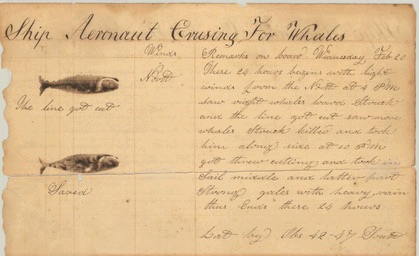 Ship Aeronaut Crusing For Whales
Winds
North
The line got cut
Saved
Remarks on board Wednesday Feb 20
There 24 hours begins with light
winds from the North at 4 P.M
saw right whales lowed Struck
and the line got cut saw more
whales Struck killed and took
him along side at 10 P.M
got threw cutting and took in
Sail middle and latter part
Strong gales with heavy rain
thus Ends there 24 hours
Lat by Obs 42-47 South